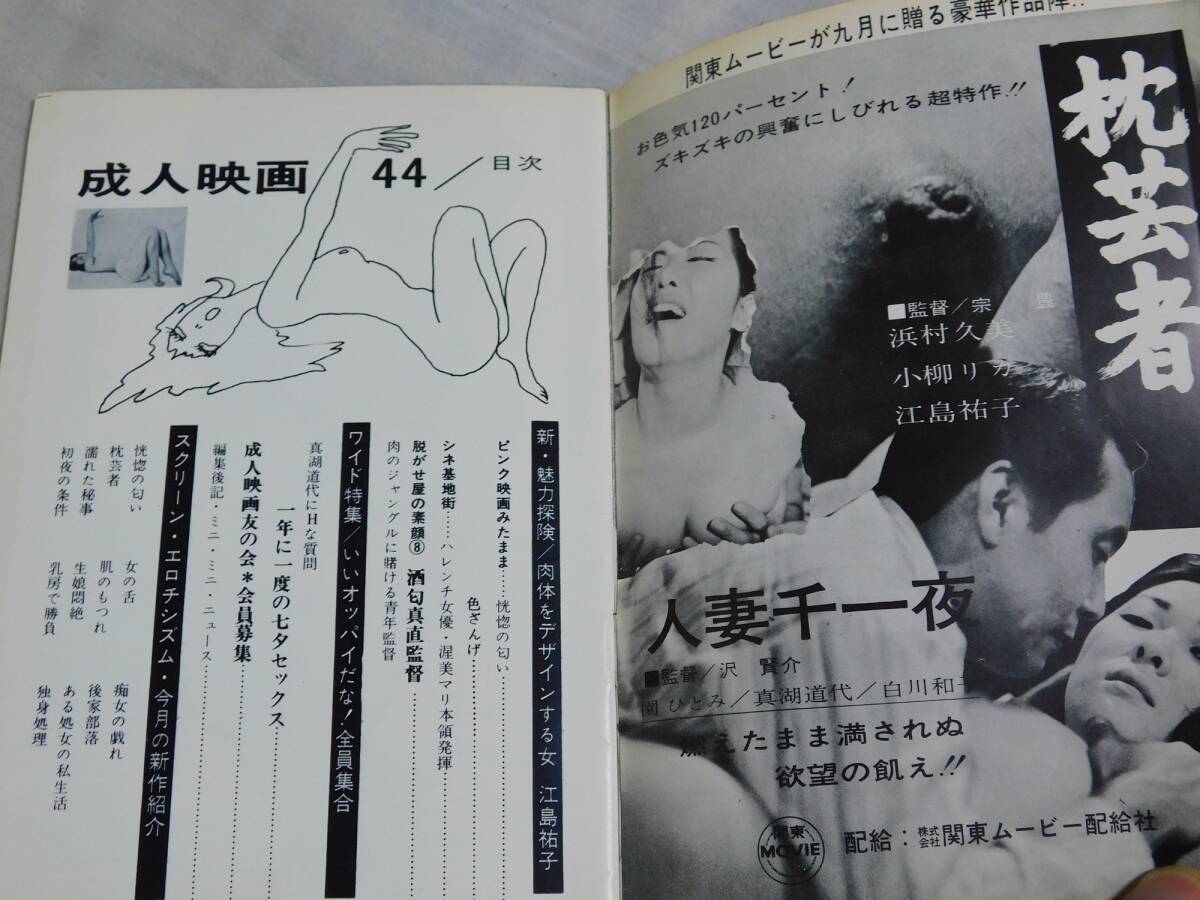 成人映画 44/目次
新・魅力探険/肉体をデザインする女 江島祐子
ピンク映画みたまま……恍惚の匂い
色ざんげ
シネ基地街……ハレンチ女優・渥美マリ本領発揮
脱がせ屋の素顔⑧ 酒匂真直監督
肉のジャングルに賭ける青年監督
ワイド特集/いいオッパイだな!全員集合
真湖道代にHな質問
一年に一度の七夕セックス
成人映画友の会*会員募集
編集後記・ミニ・ミニ・ニュース
スクリーン・エロチシズム・今月の新作紹介
恍惚の匂い 女の舌 痴女の戯れ
枕芸者 肌のもつれ 後家部落
濡れた秘事 生娘悶絶 ある処女の私生活
初夜の条件 乳房で勝負 独身処理
関東ムービーが九月に贈る豪華作品陣!!
お色気120パーセント!
ズキズキの興奮にしびれる超特作!!
枕芸者
■監督/宗 豊
浜村久美
小柳リカ
江島祐子
人妻千一夜
■監督/沢 賢介
園 ひとみ/真湖道代/白川和子
燃えたまま満されぬ
欲望の飢え!!
関東
MOVIE
配給:株式会社関東ムービー配給社